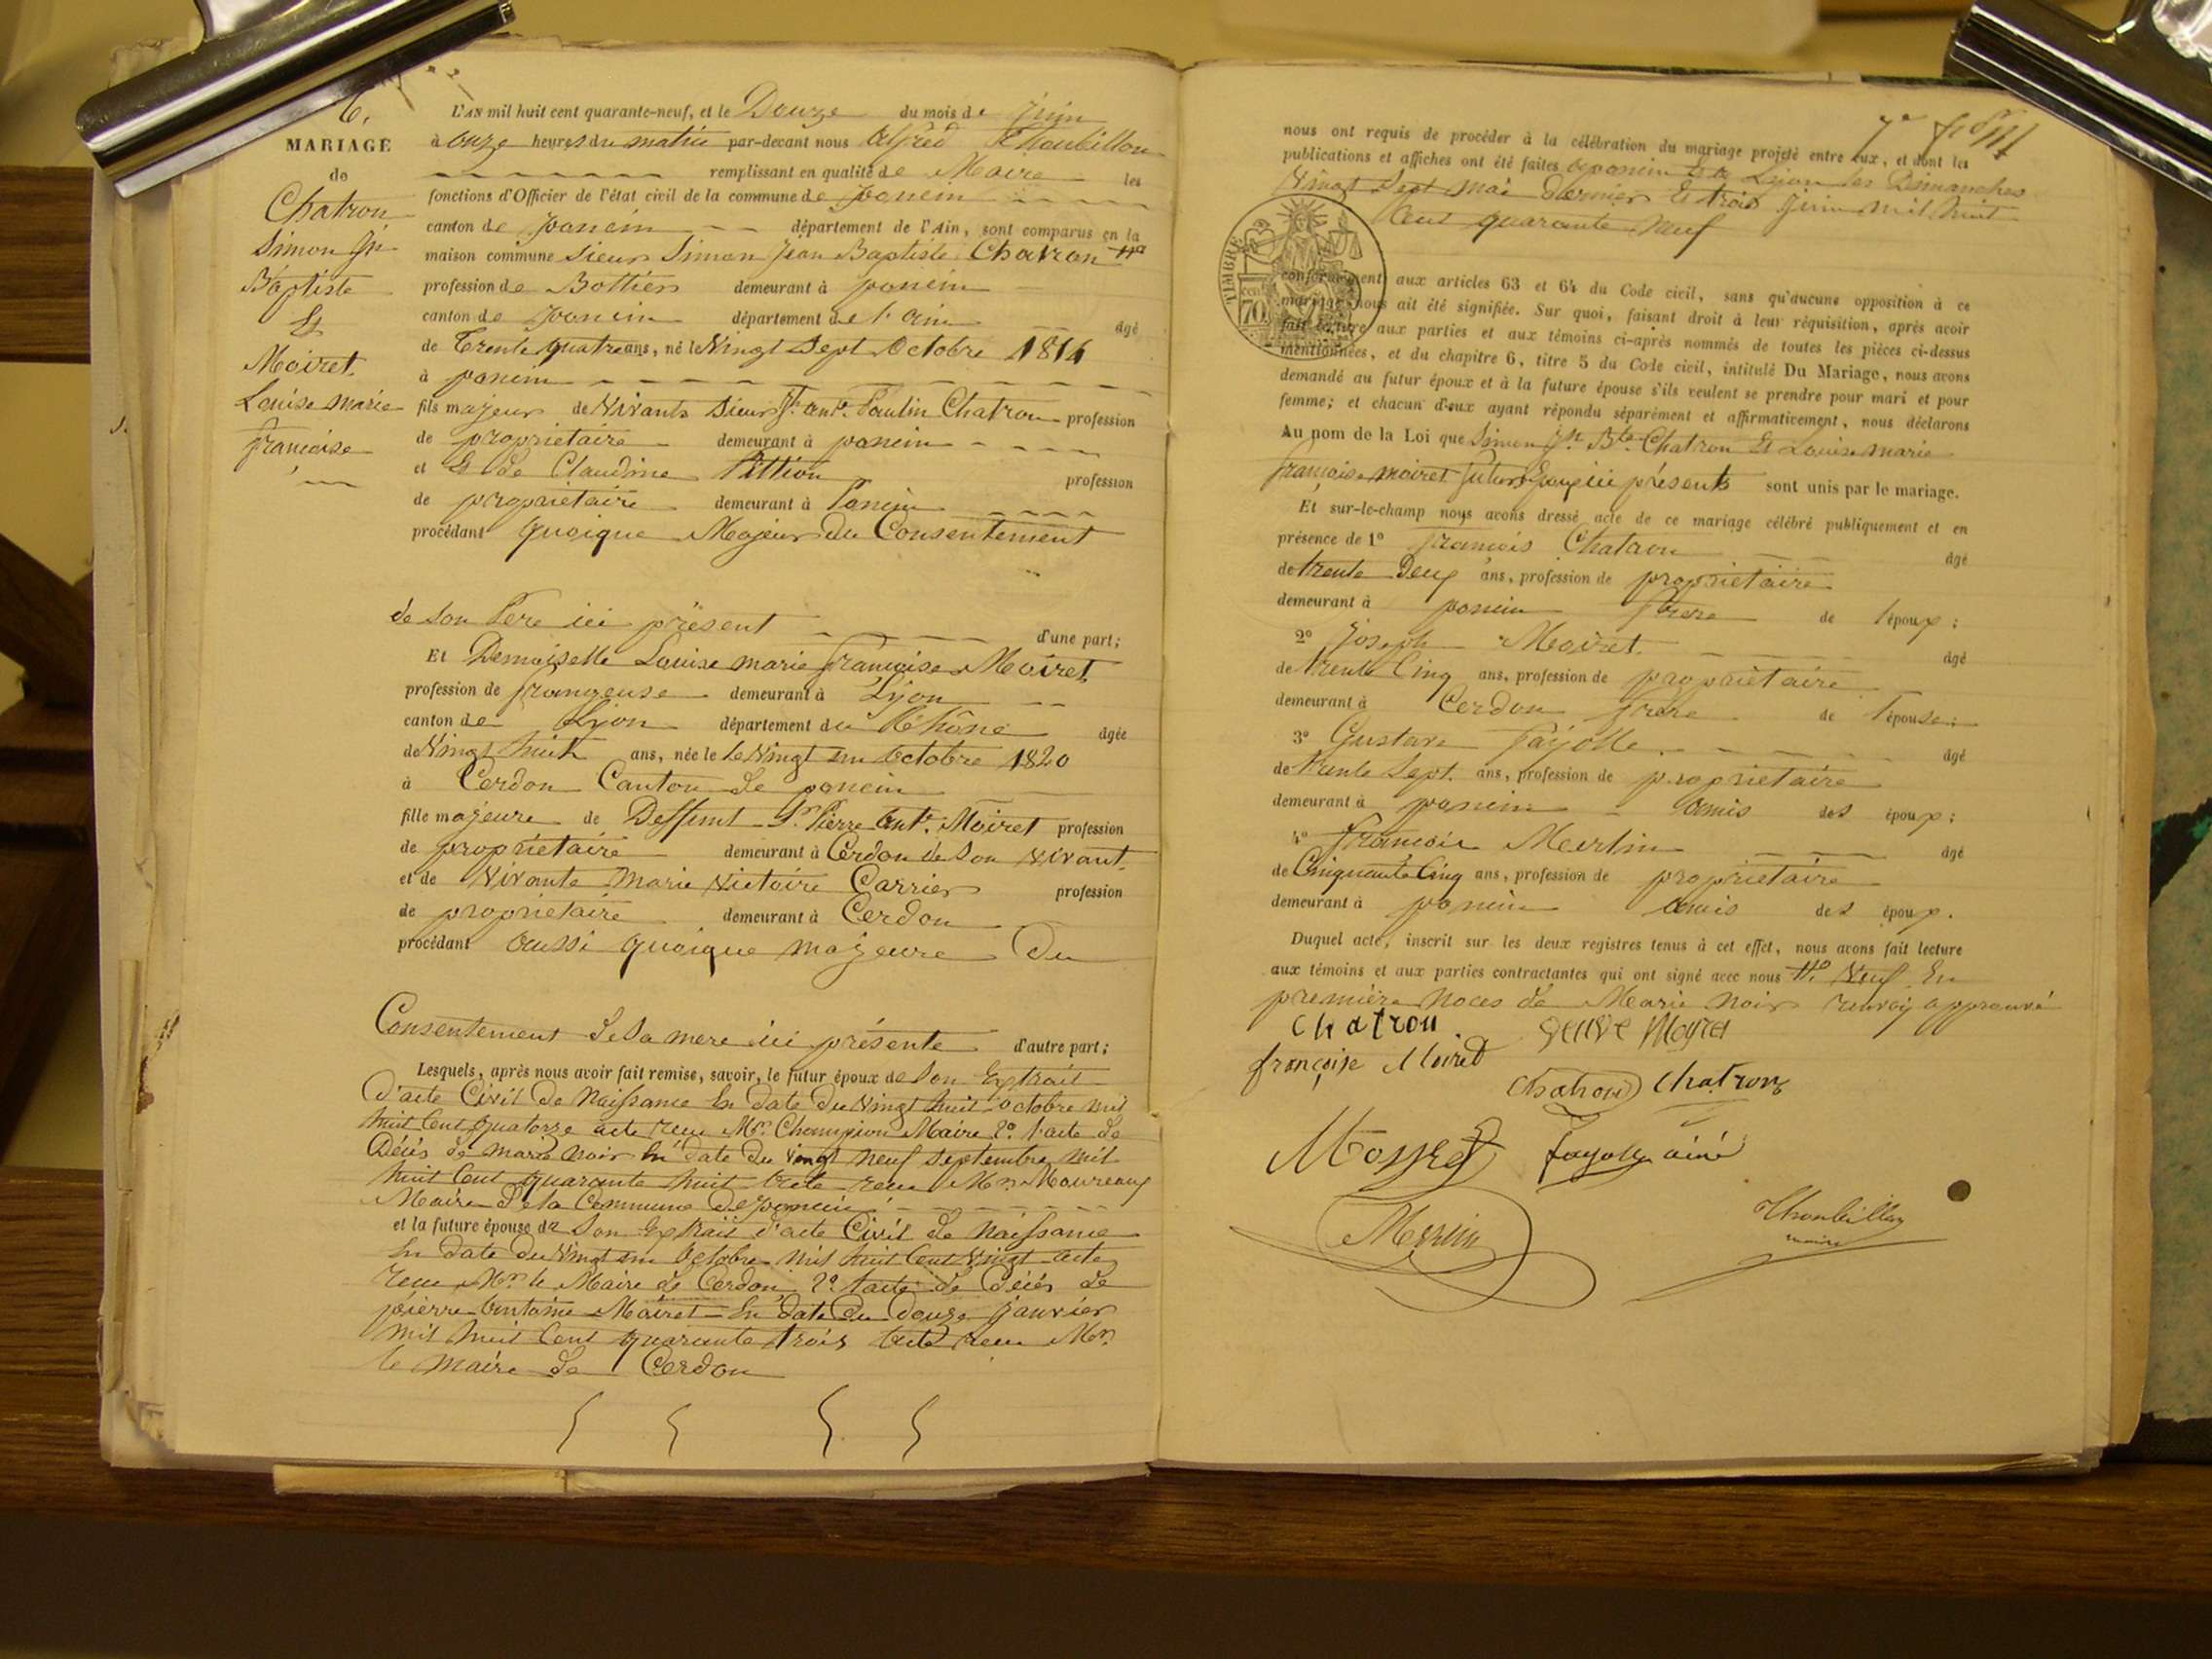 6.
MARIAGE
de
Chatron
Simon Jn
Baptiste
Et
Moiret
Louise marie
françoise
L'AN mil huit cent quarante-neuf, et le Douze du mois de juin
à onze heures du matin par-devant nous Alfred Thoubillon
remplissant en qualité de Maire les
fonctions d'Officier de l'état civil de la commune de poncin
canton de poncin département de l'Ain, sont comparus en la
maison commune Sieur Simon Jean Baptiste Chatron
profession de Bottier demeurant à poncin
canton de poncin département de l'ain âgé
de Trente quatre ans, né le Vingt Sept Octobre 1814
à poncin
fils majeur de Vivants Sieur Jh. ant. Paulin Chatron profession
de propriétaire demeurant à poncin
et Et de Claudine Pittion profession
de propriétaire demeurant à Poncin
procédant quoique Majeur du Consentement
de son Père ici présent d'une part;
Et Demoiselle Louise marie françoise Moiret
profession de frangeuse demeurant à Lyon
canton de Lyon département du Rhône âgée
de Vingt huit ans, née le le Vingt un Octobre 1820
à Cerdon Canton de poncin
fille majeure de Deffunt Sr Pierre Ant. Moiret profession
de propriétaire demeurant à Cerdon de son vivant
et de Vivante Marie Victoire Carrier profession
de propriétaire demeurant à Cerdon
procédant aussi quoique majeure du
Consentement de Sa mere ici présente d'autre part;
Lesquels, après nous avoir fait remise, savoir, le futur époux de Son Extrait
d'acte Civil de Naissance En date du Vingt huit octobre mil
huit Cent quatorze acte reçu Mr. Champion Maire 2º l'acte de
Décès de marie noir En date du Vingt neuf Septembre mil
huit Cent quarante huit acte reçu Mr. Moureaux
Maire de la Commune de poncin
et la future épouse de Son Extrait d'acte Civil de Naissance
En date du Vingt un Octobre mil huit Cent Vingt acte
reçu Mr. le Maire de Cerdon 2º l'acte de Décès de
pierre Antoine Moiret En date du Douze janvier
mil huit Cent quarante trois acte reçu Mr.
le maire de Cerdon
nous ont requis de procéder à la célébration du mariage projeté entre eux, et dont les
publications et affiches ont été faites à poncin Et à Lyon les Dimanches
Vingt Sept mai Dernier Et trois juin mil huit
Cent quarante neuf
TIMBRE
70
conformément aux articles 63 et 64 du Code civil, sans qu'aucune opposition à ce
mariage nous ait été signifiée. Sur quoi, faisant droit à leur réquisition, après avoir
fait lecture aux parties et aux témoins ci-après nommés de toutes les pièces ci-dessus
mentionnées, et du chapitre 6, titre 5 du Code civil, intitulé Du Mariage, nous avons
demandé au futur époux et à la future épouse s'ils veulent se prendre pour mari et pour
femme; et chacun d'eux ayant répondu séparément et affirmativement, nous déclarons
Au nom de la Loi que Simon Jn. Bte. Chatron Et Louise marie
françoise moiret futurs Epoux ici présents sont unis par le mariage.
Et sur-le-champ nous avons dressé acte de ce mariage célébré publiquement et en
présence de 1º françois Chatron âgé
de trente Deux ans, profession de propriétaire
demeurant à poncin frere de l'époux;
2º Joseph Moiret âgé
de trente Cinq ans, profession de propriétaire
demeurant à Cerdon frere de l'épouse;
3º Gustave Fayolle âgé
de trente Sept ans, profession de propriétaire
demeurant à poncin amis des époux;
4º françois Merlin âgé
de Cinquante Cinq ans, profession de propriétaire
demeurant à poncin amis des époux.
Duquel acte, inscrit sur les deux registres tenus à cet effet, nous avons fait lecture
aux témoins et aux parties contractantes qui ont signé avec nous Veuf En
première noces de Marie noir renvoi approuvé
Chatron veuve Moiret
françoise Moiret
Chatron Chatron
Fayolle ainé
Merlin
Thoubillon
maire